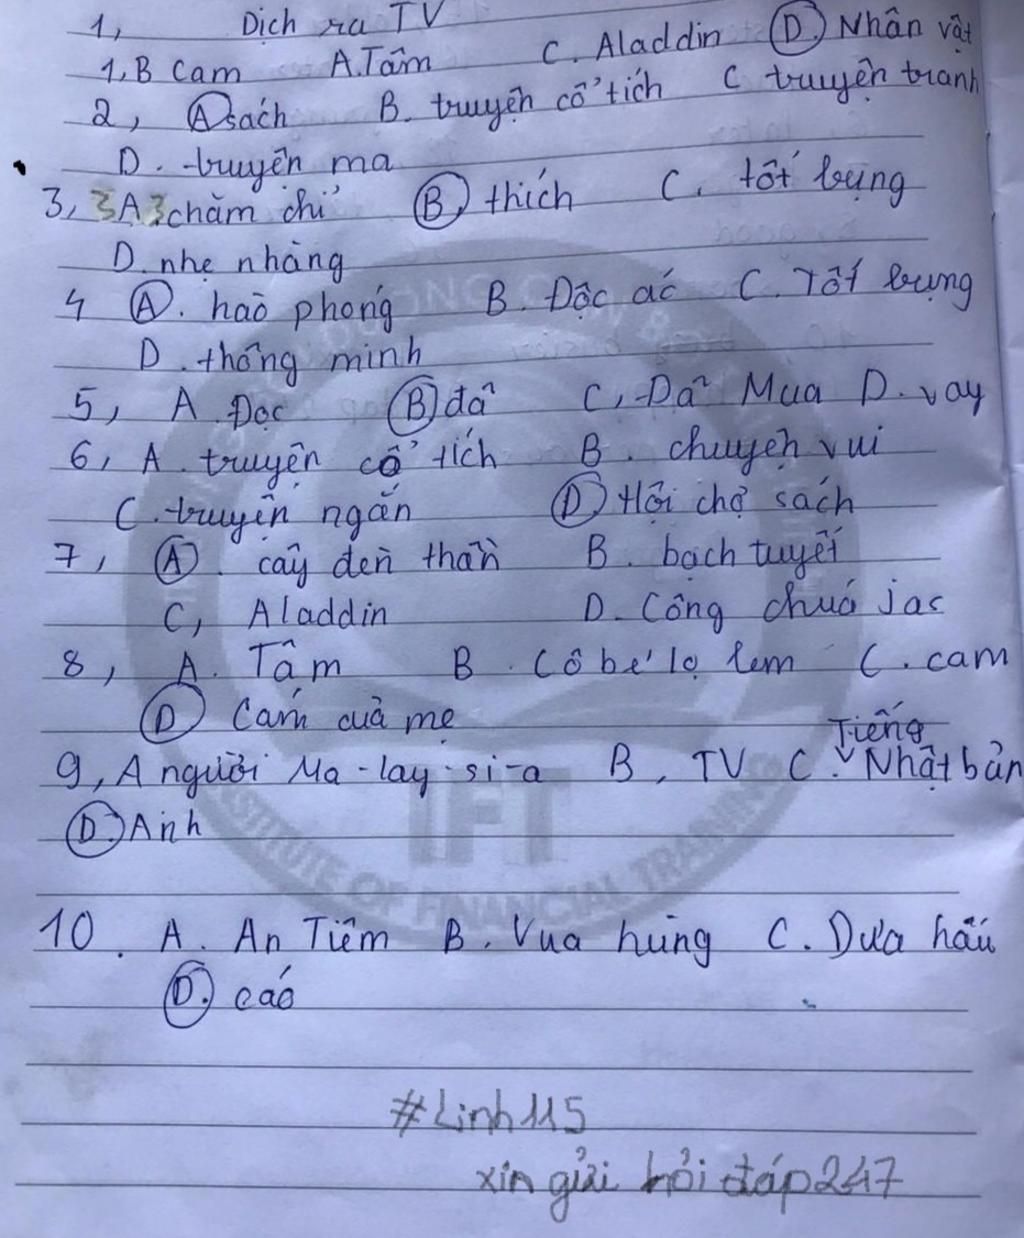 1, Dịch ra TV
1, B Cam A. Tâm C. Aladdin D. Nhân vật
2, A sách B. truyện cổ tích C truyện tranh
D. truyện ma
3, 3A3 chăm chỉ B, thích C. tốt bụng
D. nhẹ nhàng
4 A. hào phóng B. Độc ác C. Tốt bụng
D. thông minh
5, A. Đọc B đã C, Đã Mua D. vay
6, A. truyện cổ tích B. chuyện vui
C. truyện ngắn D Hội chợ sách
7, A. cây đèn thần B. bạch tuyết
C, Aladdin D. Công chúa jac
8, A. Tâm B. Cô bé lọ lem C. cam
D Cám của mẹ
Tiếng
9, A người Ma-lay-si-a B, TV C. Nhật bản
D. Anh
10. A. An Tiêm B. Vua hùng C. Dưa hấu
D. cáo
INSTITUTE OF FINANCIAL TRAINING
IFT
#Linh115
xin giải hỏi đáp 247